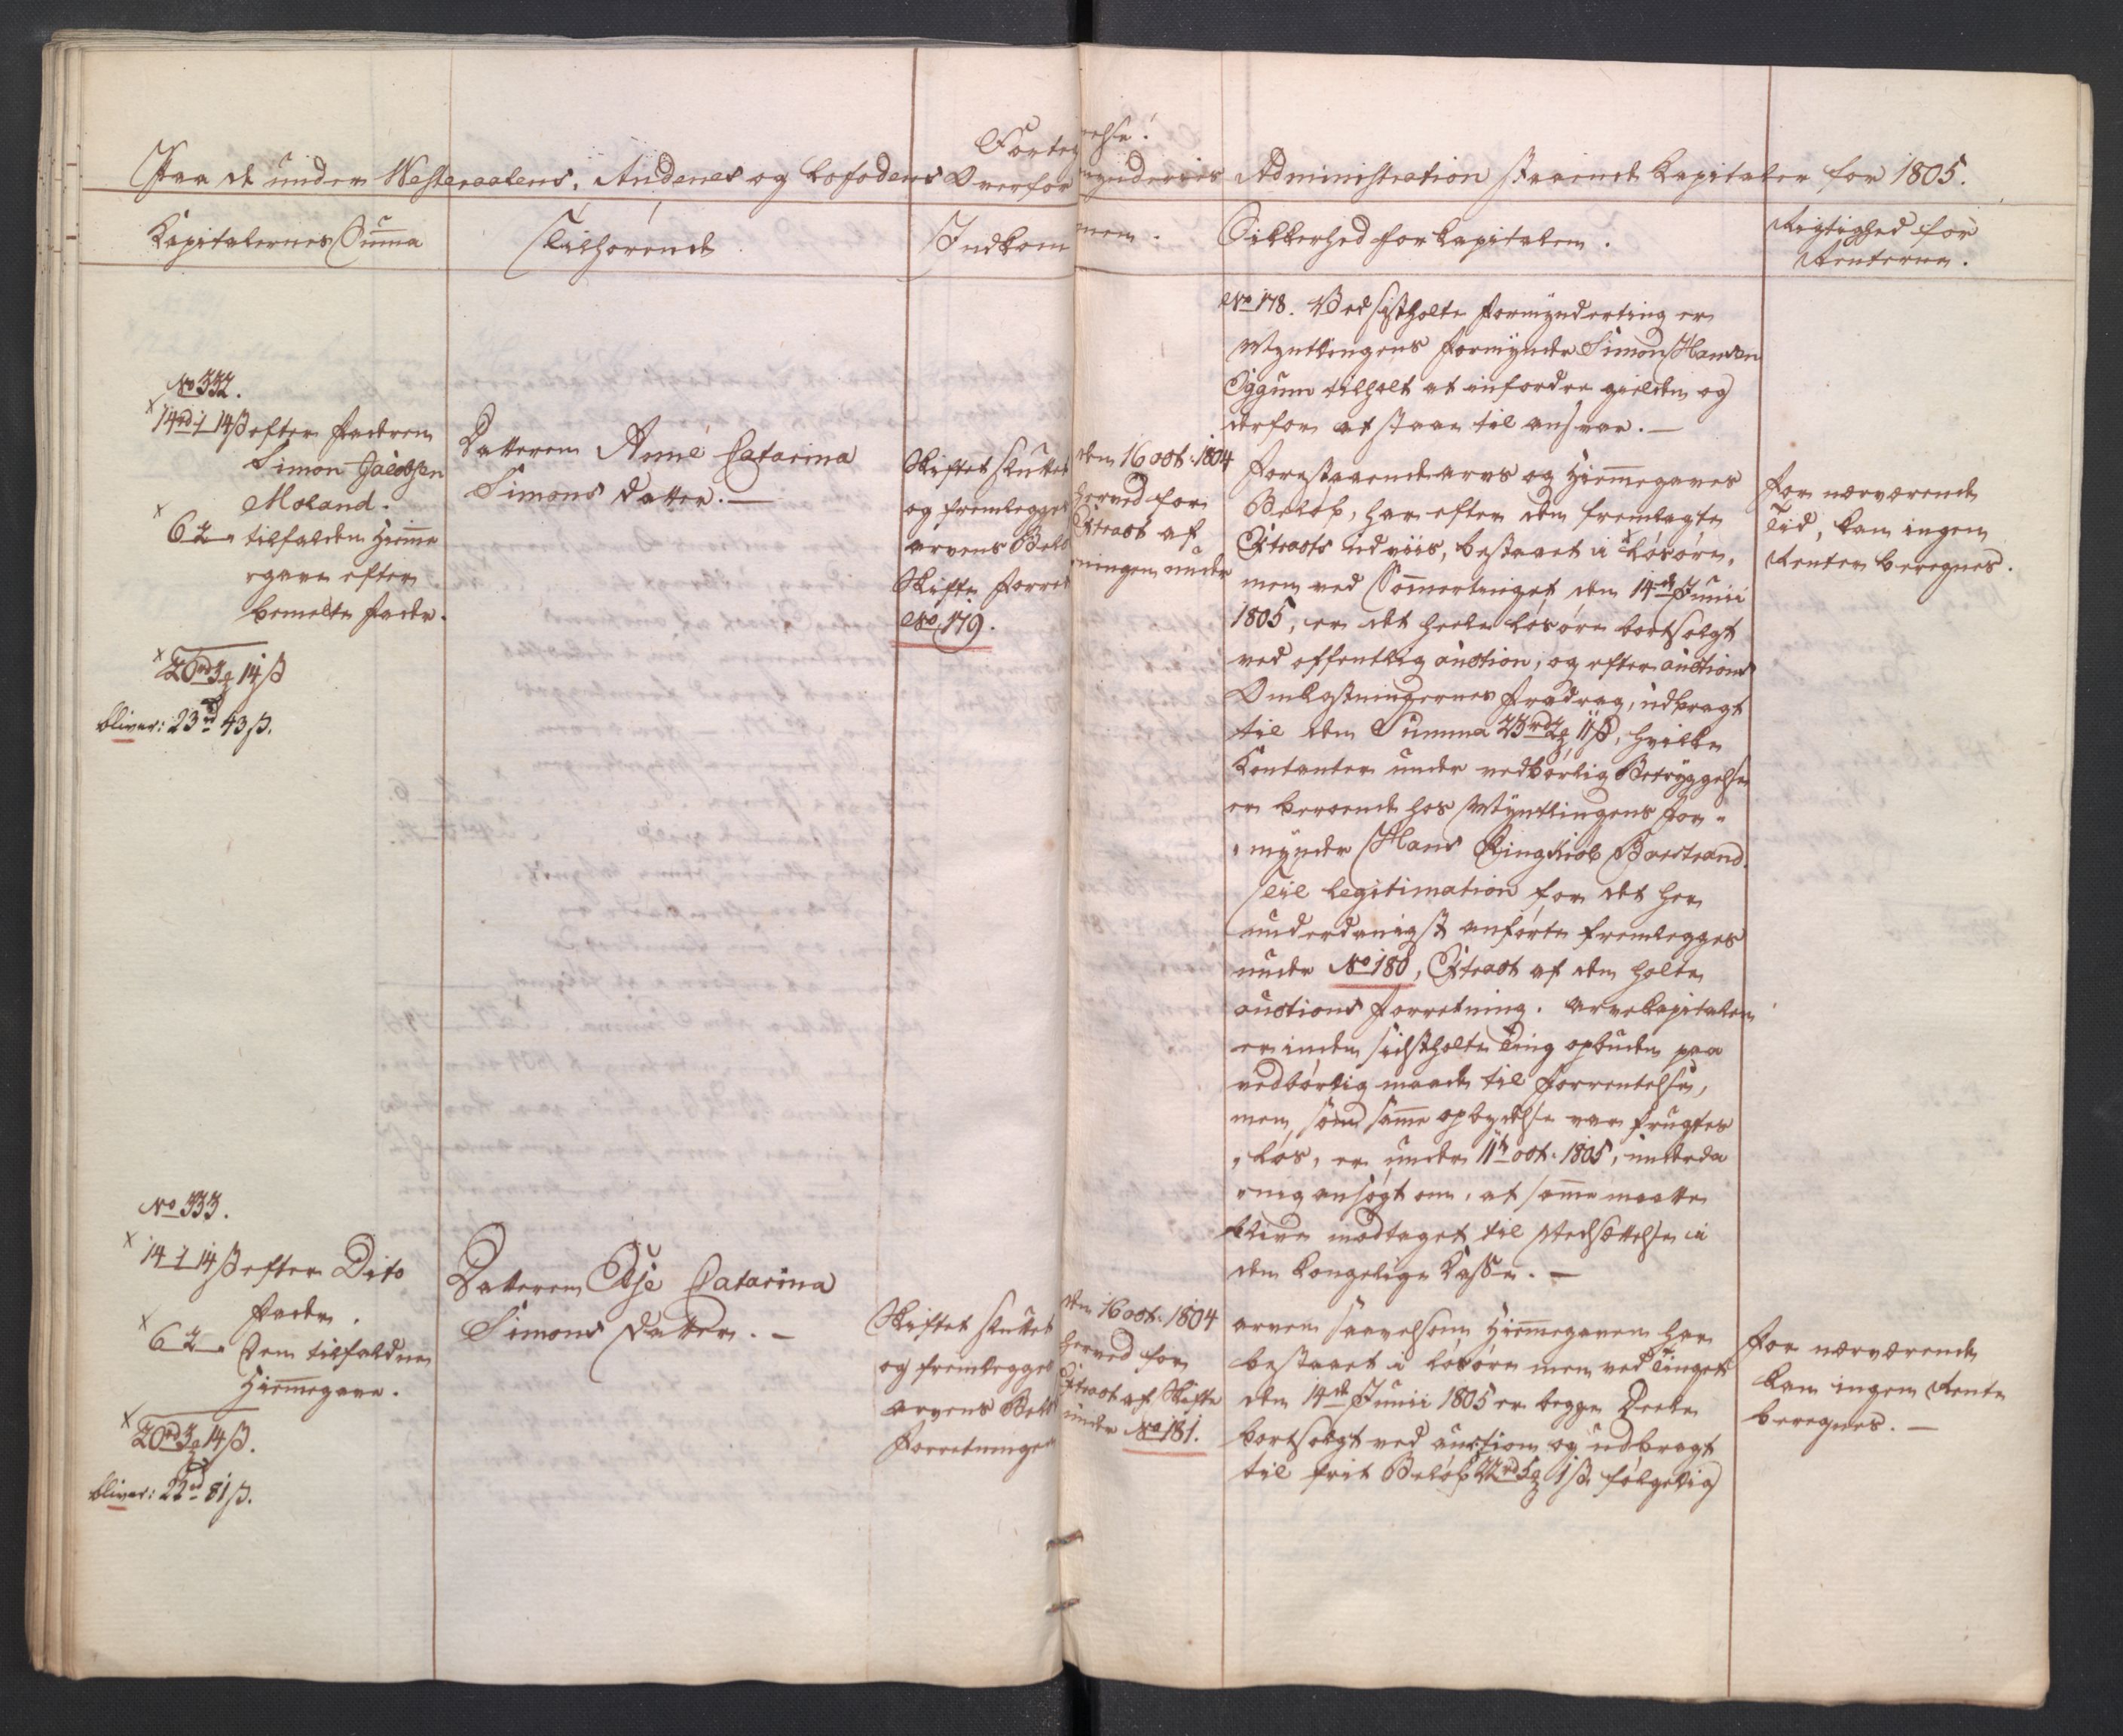 Forteg nelse!
Paa de under Westeraalens, Andenes og Lofodens Overfor mynderies Administration staaende Kapitaler for 1805.
Kapitalernes Suma
Tilhørende
Indkom men.
Sikkerhed for Kapitalen.
Rigtighed for
Renterne.
No 332.
14rd 1 14ß efter Faderen
Simon Jacobsen
Moland.
6 2 „ tilfalden Hieme
„gave efter
bemelte Fader.
20rd 3 14ß
bliver: 23rd 43ß.
Datteren Anne Catarina
Simons Datter. —
Skiftet sluttet den 16 oct: 1804
og fremlegges herved for
arvens Beløb Extract af
Skifte Forret ningen under
No 179.
No 178. Ved sistholte Formynderting er
Myntlingens Formynder Simon Hansen
Eggum tilholt at infordre gielden og
derfor at staae til ansvar. —
Forestaaende arvs og Hiemegaves
Beløb, har efter den fremlagte
Extracts udviis, bestaaet i Løsøre,
men ved Somertinget den 14de Junii
1805, er det heele Løsøre bortsolgt
ved offentlig auction, og efter auctions
Omkostningernes Fradrag, udbragt
til den Summa 23rd 2 11ß, hvilke
Contanter under vedbørlig Betryggelse
er beroende hos Myntlingens For„
„mynder Hans Ringkiob Borstrand.
Til Legitimation for det her
underdanigst anførte fremlegges
under No 180, Extract af den holte
auctions Forretning. Arvekapitalen
er inden sidstholte Ting opbuden paa
vedbørlig maade til Forrentelse,
men, som same opbydelse var frugtes
„løs, er under 11te oct: 1805, underda
„nig ansøgt om, at same maatte
blive modtaget til Nedsættelse i
den kongelige Kasse. —
For nærværende
Tid, kan ingen
Renter beregnes.
No 333.
14 1 14ß efter Dito
Fader.
6 2 „ Den tilfaldne
Hiemegave.
20rd 3 14ß.
bliver: 22rd 81ß.
Datteren Else Catarina
Simons Datter. —
Skiftet sluttet den 16 oct: 1804
og fremlegges herved for
arvens Beløb Extract af Skifte
Forretningen under No 181.
arven saavelsom Hiemegaven har
bestaaet i Løsøre men ved Tinget
den 14de Junii 1805 er begge Deele
bortsolgt ved auction og udbragt
til frit Beløb 22rd 5 1ß følgelig
For nærværende
kan ingen Rente
beregnes. —